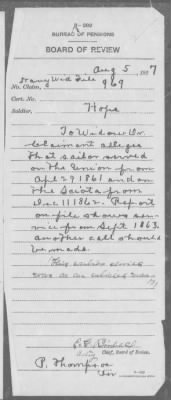 BUREAU OF PENSIONS
BOARD OF REVIEW
Aug 5, 1887
Navy Wid File
No. Claim, 969
Cert. No.
Soldier, Hope
To Widow Div.
Claimant alleges
that sailor served
on the Union from
Apl 29 1861 and on
the Sciota from
Dec 11 1862. Report
on file shows ser-
vice from Sept 1863,
another call should
be made.
This sailor
was an enlisted
Chief, Board of Review.
P. Thompson